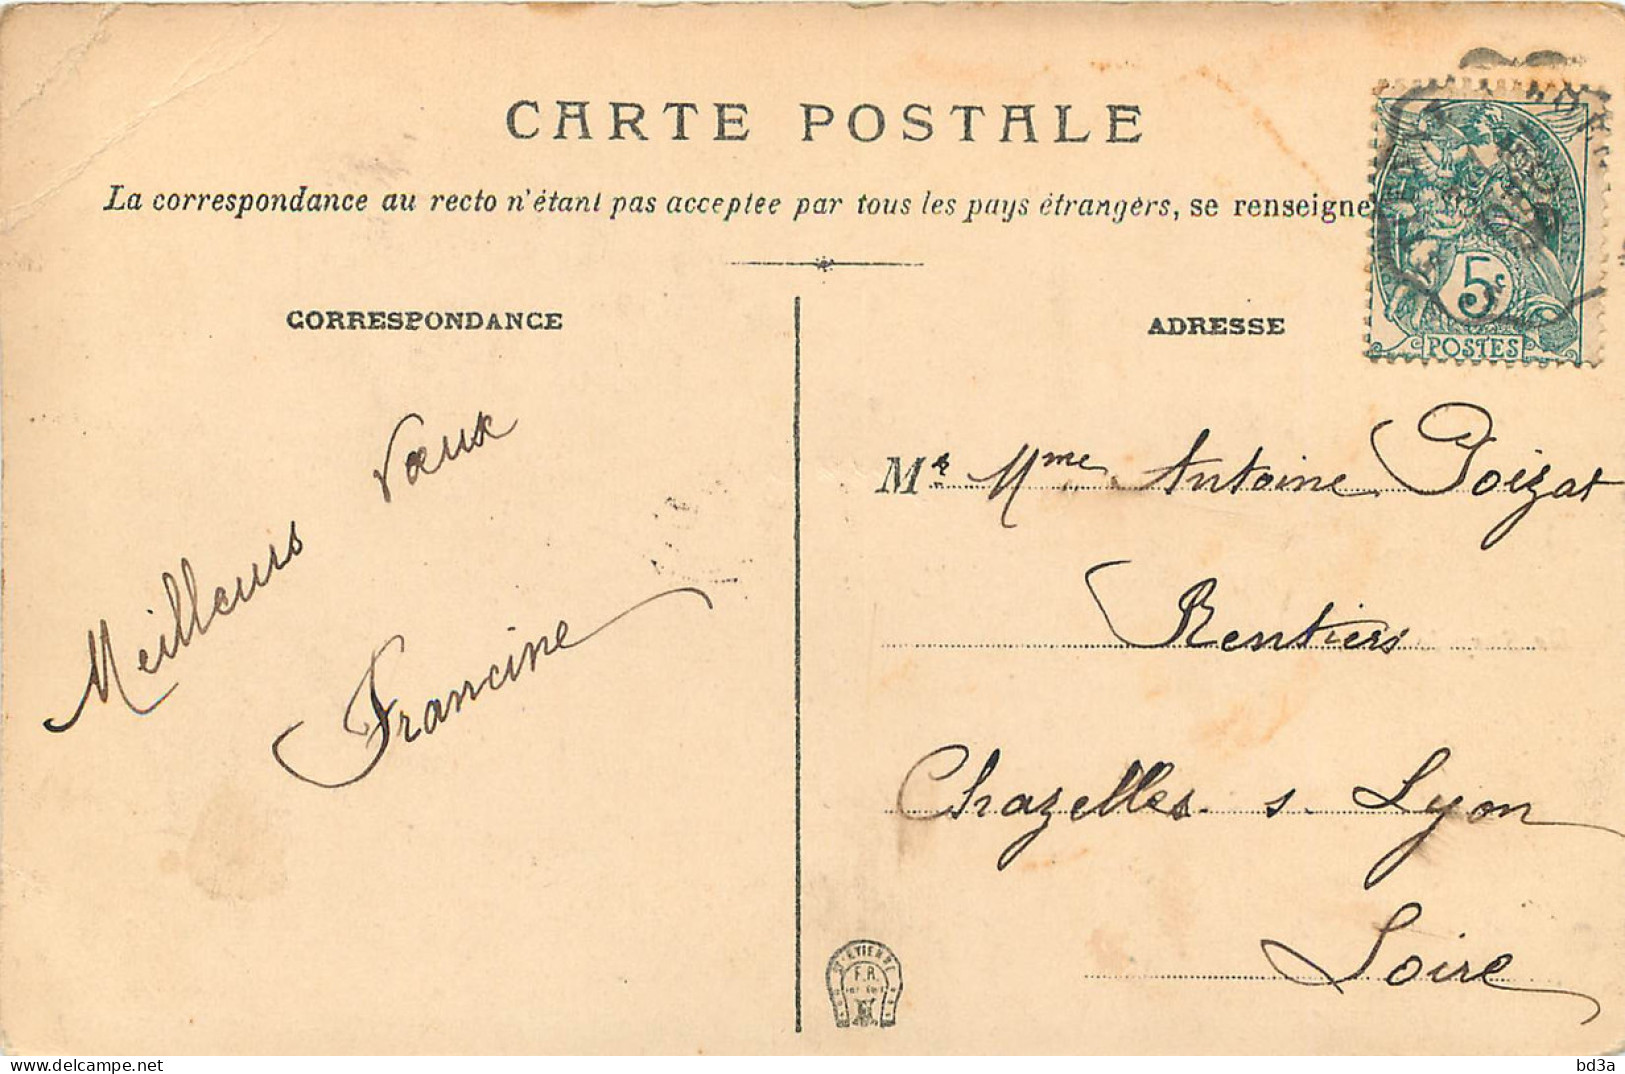 CARTE POSTALE
La correspondance au recto n'étant pas acceptée par tous les pays étrangers, se renseigne
CORRESPONDANCE
ADRESSE
5c
POSTES
Meilleurs Vœux
Francine
Mr Mme Antoine Poizat
Rentiers
Chazelles s. Lyon
Loire
ST-ETIENNE
F.R.
delcampe.net
bd3a